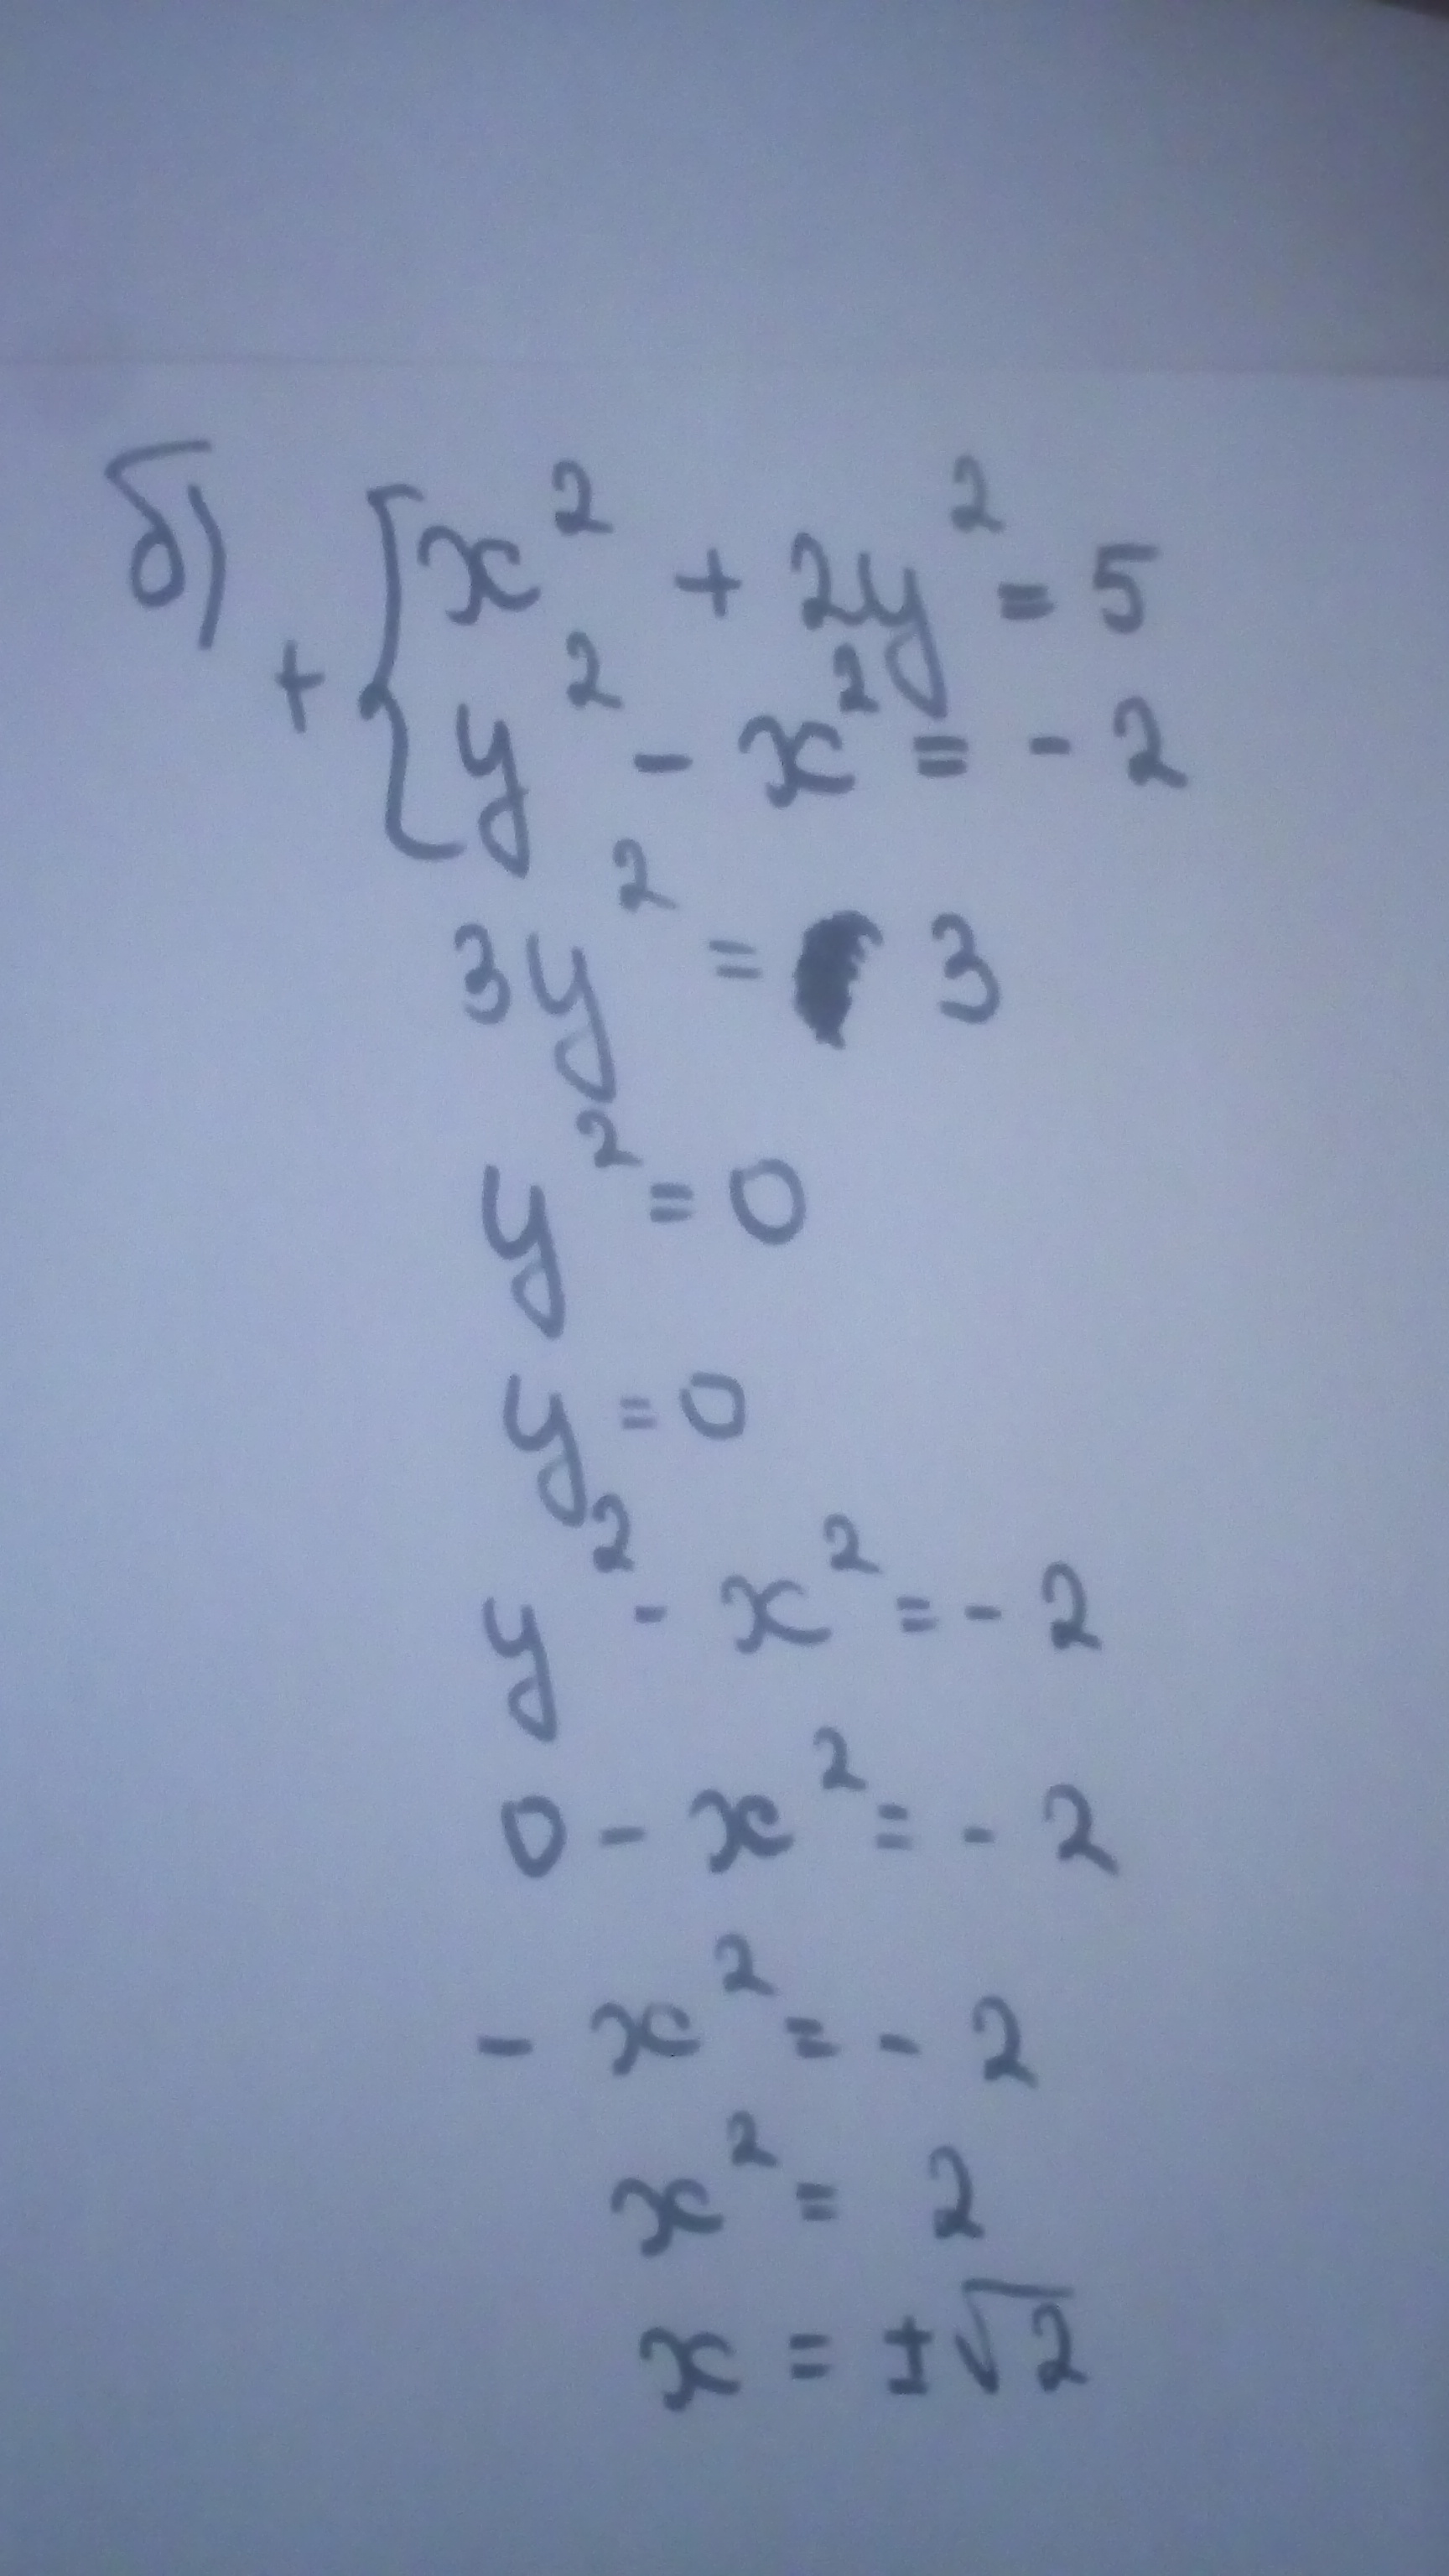 б) + { x² + 2y² = 5
y² - x² = - 2
3y² = 3
y² = 0
y = 0
y² - x² = - 2
0 - x² = - 2
- x² = - 2
x² = 2
x = ±√2